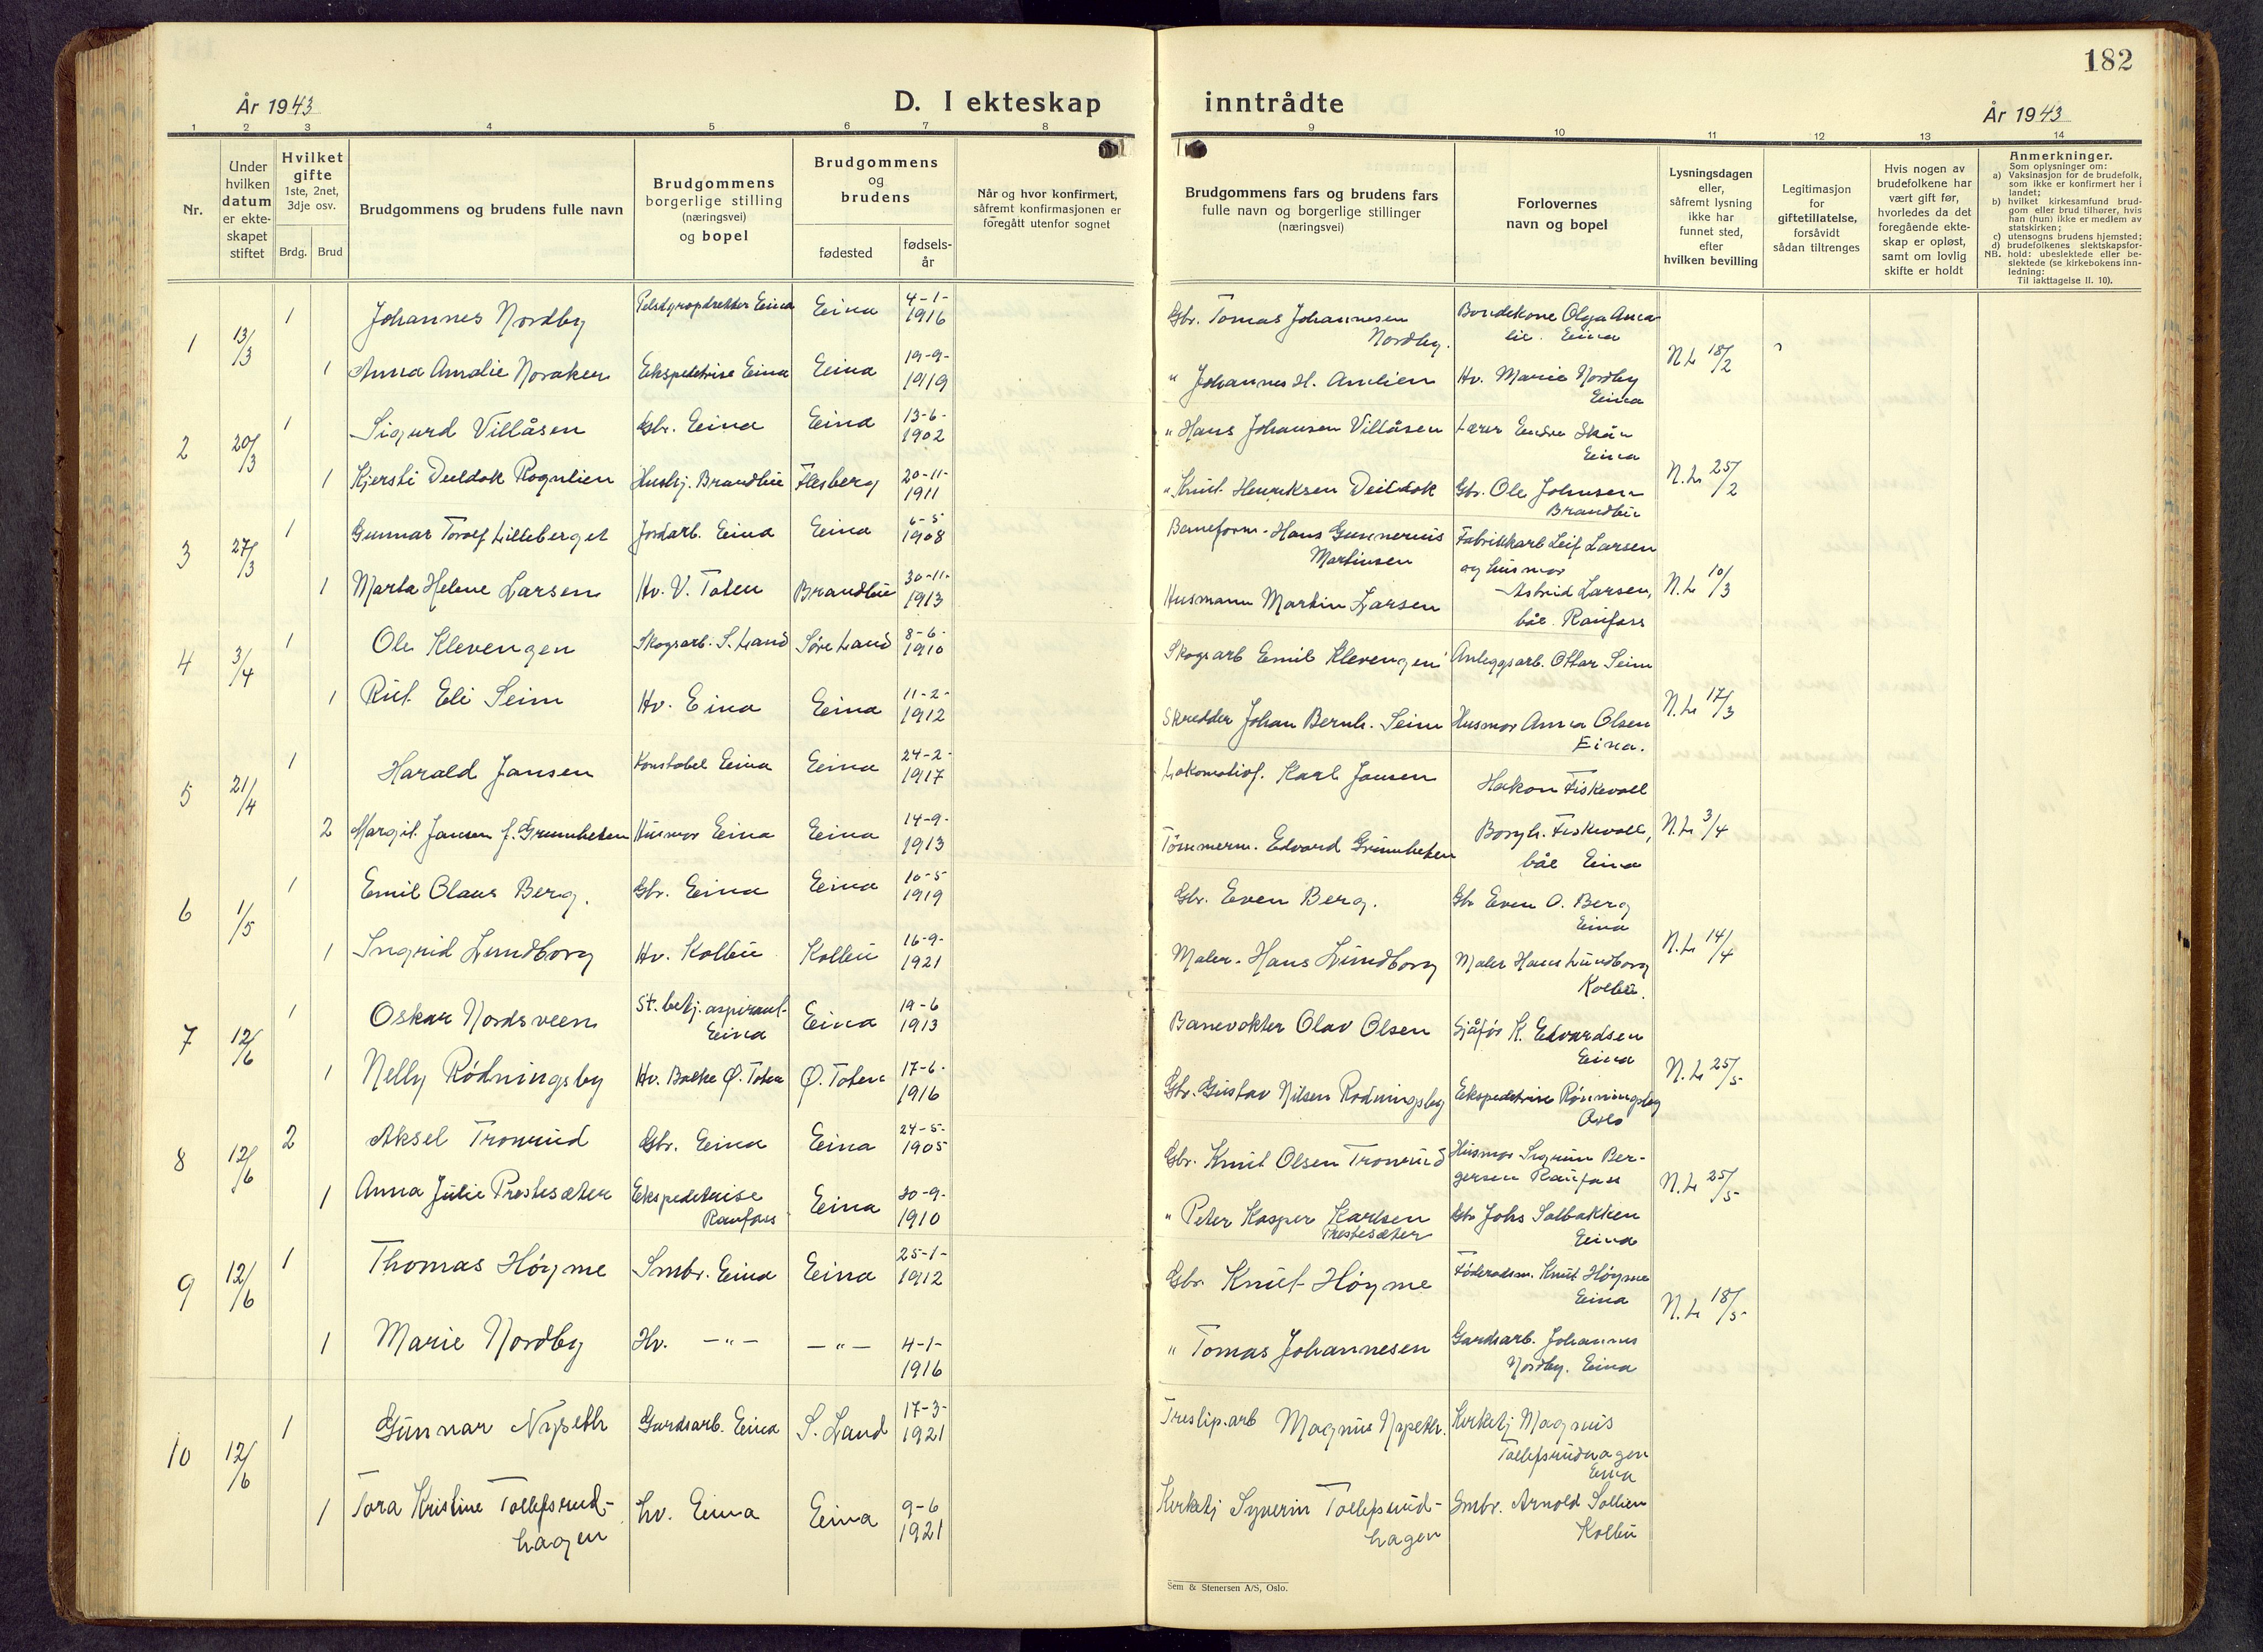 182
År 1943
D. I ekteskap inntrådte
År 1943
1 2 3 4 5 6 7 8 9 10 11 12 13 14
Nr.
Under hvilken datum er ekteskapet stiftet
Hvilket gifte 1ste, 2net, 3dje osv.
Brdg. Brud
Brudgommens og brudens fulle navn
Brudgommens borgerlige stilling (næringsvei) og bopel
Brudgommens og brudens
fødested fødselsår
Når og hvor konfirmert, såfremt konfirmasjonen er foregått utenfor sognet
Brudgommens fars og brudens fars fulle navn og borgerlige stillinger (næringsvei)
Forlovernes navn og bopel
Lysningsdagen eller, såfremt lysning ikke har funnet sted, efter hvilken bevilling
Legitimasjon for giftetillatelse, forsåvidt sådan tiltrenges
Hvis nogen av brudefolkene har vært gift før, hvorledes da det foregående ekteskap er opløst, samt om lovlig skifte er holdt
Anmerkninger.
Som oplysninger om:
a) Vaksinasjon for de brudefolk, som ikke er konfirmert her i landet;
b) hvilket kirkesamfund brudgom eller brud tilhører, hvis han (hun) ikke er medlem av statskirken;
c) utensogns brudens hjemsted;
d) brudefolkenes slektskapsforhold: ubeslektede eller beslektede (se kirkebokens innledning:
NB.
Til iakttagelse II. 10).
1 13/3 1 Johannes Nordby Eina Eina 4-1-1916 Gbr. Tomas Johannesen Nordby. Bondekone Olga Amalie. Eina
1 Anna Amalie Noraker Ekspeditrise Eina Eina 19-9-1919 " Johannes H. Amlien Hv. Marie Nordby Eina N.L 18/2
2 20/3 1 Sigurd Villåsen Gbr. Eina Eina 13-6-1902 " Hans Johansen Villåsen Lærer Endre Skån Eina
1 Kjersti Deildok Rognlien Hushj. Brandbu Flesberg 20-11-1911 " Knut Henriksen Deildok Gbr. Ole Johnsen Brandbu N.L 25/2
3 27/3 1 Gunnar Torolf Lilleberget Jordarb. Eina Eina 6-5-1908 Baneform. Hans Gunnerius Martinsen Fabrikkarb Leif Larsen og husmor
1 Marta Helene Larsen Hv. V. Toten Brandbu 30-11-1913 Husmann Martin Larsen Astrid Larsen, båe Raufoss N.L 10/3
4 3/4 1 Ole Klevengen Skogsarb. S. Land Søre Land 8-6-1910 Skogsarb Emil Klevengen Anleggsarb. Ottar Seim
1 Rut Eli Seim Hv. Eina Eina 11-2-1912 Skredder Johan Bernh. Seim Husmor Anna Olsen Eina. N.L 17/3
5 21/4 1 Harald Jansen Konstabel Eina Eina 24-2-1917 Lokomotivf. Karl Jansen Hakon Fiskevoll
2 Margit Jansen f. Grimheten Husmor Eina Eina 14-9-1913 Tømmerm. Edvard Grimheten Borgh. Fiskevoll, båe Eina N.L 3/4
6 1/5 1 Emil Olaus Berg. Gbr. Eina Eina 10-5-1919 Gbr. Even Berg. Gbr Even O. Berg Eina
1 Ingrid Lundborg Hv. Kolbu Kolbu 16-9-1921 Maler. Hans Lundborg Maler Hans Lundborg Kolbu. N.L 14/4
7 12/6 1 Oskar Nordsveen St. betj. aspirant Eina Eina 19-6 1913 Banevokter Olav Olsen Sjåfør K. Edvardsen Eina
1 Nelly Rødningsby Hv. Balke Ø. Toten Ø. Toten 17-6-1916 Gbr. Gustav Nilsen Rødningsby Ekspeditrise Rønningsby Oslo N.L 25/5
8 12/6 2 Aksel Tronrud Gbr. Eina Eina 24-5-1905 Gbr. Knut Olsen Tronrud Husmor Sigrun Bergersen Raufoss
1 Anna Julie Prestesæter Ekspeditrise Raufoss Eina 30-9-1910 " Peter Kasper Karlsen Prestesæter Gbr Johs Solbakken Eina N.L 25/5
9 12/6 1 Thomas Høyme Smbr. Eina Eina 25-1-1912 Gbr. Knut Høyme Føderadsm. Knut Høyme Eina
1 Marie Nordby Hv. -"- -"- 4-1-1916 " Tomas Johannesen Gardsarb. Johannes Nordby. Eina N.L 18/5
10 12/6 1 Gunnar Nyseth Gardsarb. Eina S. Land 17-3-1921 Treslip.arb Magnus Nyseth. Kirketj Magnus Tollefsrudhagen Eina
1 Tora Kristine Tollefsrudhagen Hv. Eina Eina 9-6 1921 Kirketj Syverin Tollefsrudhagen Smbr. Arnold Sollien Kolbu
Sem & Stenersen A/S, Oslo.